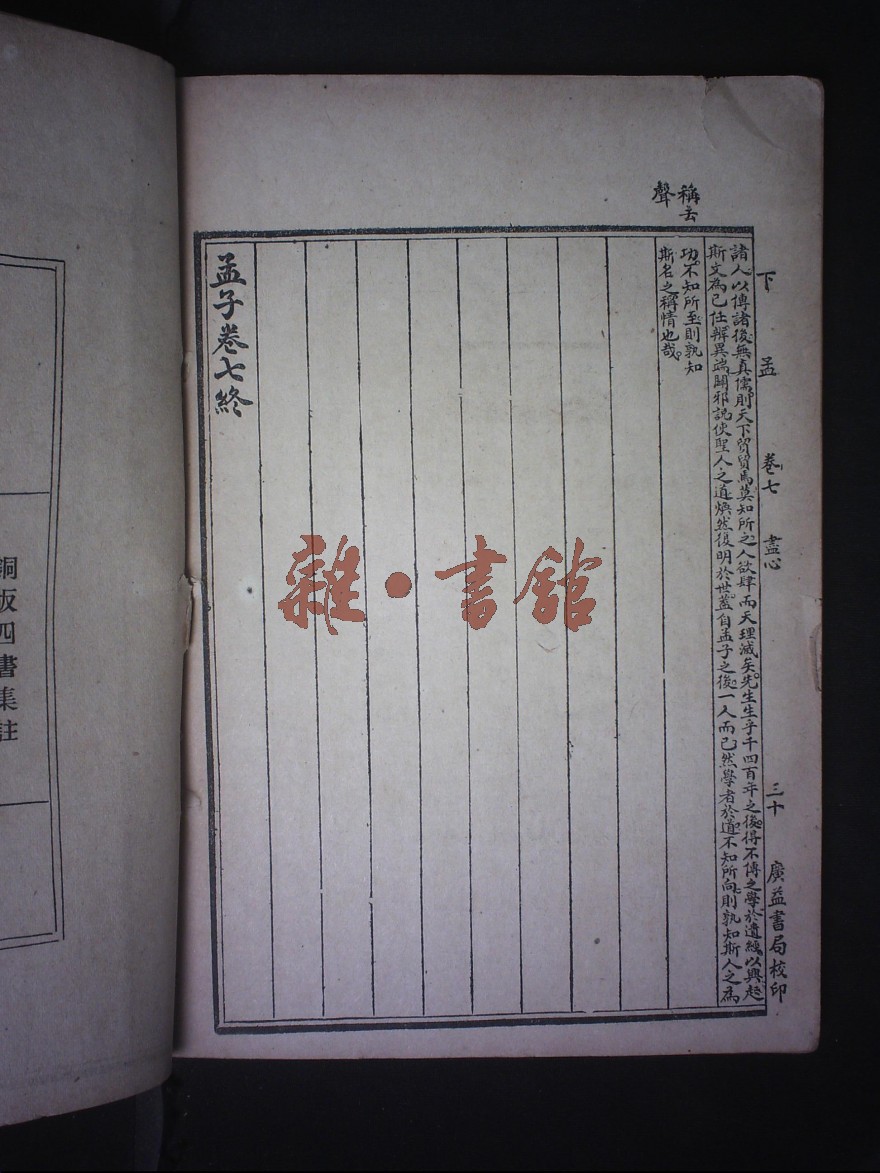 下孟 卷七 盡心 三十 廣益書局校印
稱去
聲
諸人以傳諸後無真儒則天下貿貿焉莫知所之人欲肆而天理滅矣。先生生乎千四百年之後。得不傳之學於遺經以興起
斯文為己任辨異端闢邪說使聖人之道煥然復明於世。蓋自孟子之後。一人而已然學者於道不知所向。則孰知斯人之為
功。不知所至。則孰知
斯名之稱情也哉。
孟子卷七終
雜·書館
銅版四書集註